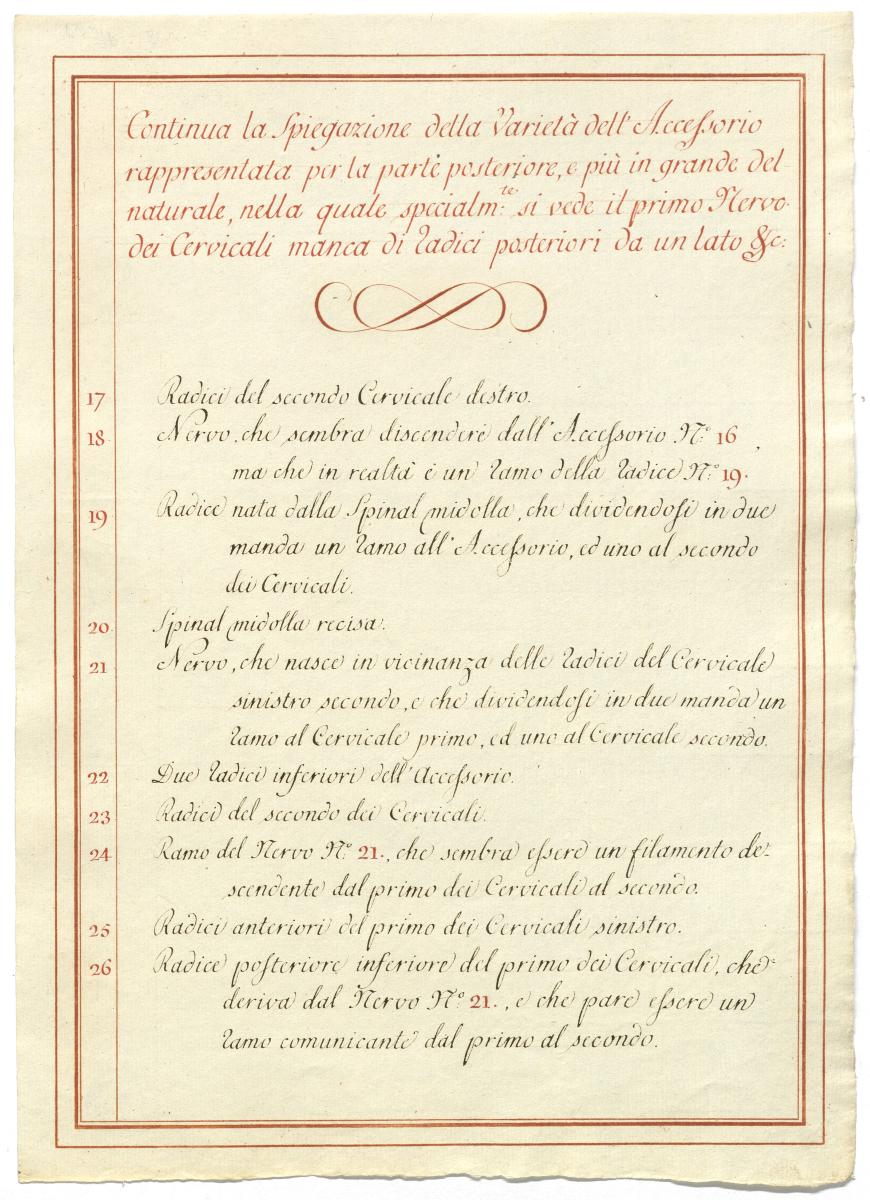 Continua la Spiegazione della Varietà dell' Accessorio
rappresentata per la parte posteriore, e più in grande del
naturale, nella quale specialm:te si vede il primo Nervo
dei Cervicali manca di radici posteriori da un lato &c:
17 Radici del secondo Cervicale destro.
18 Nervo, che sembra discendere dall' Accessorio N.o 16
ma che in realtà è un ramo della radice N.o 19.
19 Radice nata dalla Spinal midolla, che dividendosi in due
manda un ramo all' Accessorio, ed uno al secondo
dei Cervicali.
20 Spinal midolla recisa.
21 Nervo, che nasce in vicinanza delle radici del Cervicale
sinistro secondo, e che dividendosi in due manda un
ramo al Cervicale primo, ed uno al Cervicale secondo.
22 Due radici inferiori dell' Accessorio.
23 Radici del secondo dei Cervicali.
24 Ramo del Nervo N.o 21., che sembra essere un filamento de-
scendente dal primo dei Cervicali al secondo.
25 Radici anteriori del primo dei Cervicali sinistro.
26 Radice posteriore inferiore del primo dei Cervicali, che
deriva dal Nervo N.o 21., e che pare essere un
ramo comunicante dal primo al secondo.